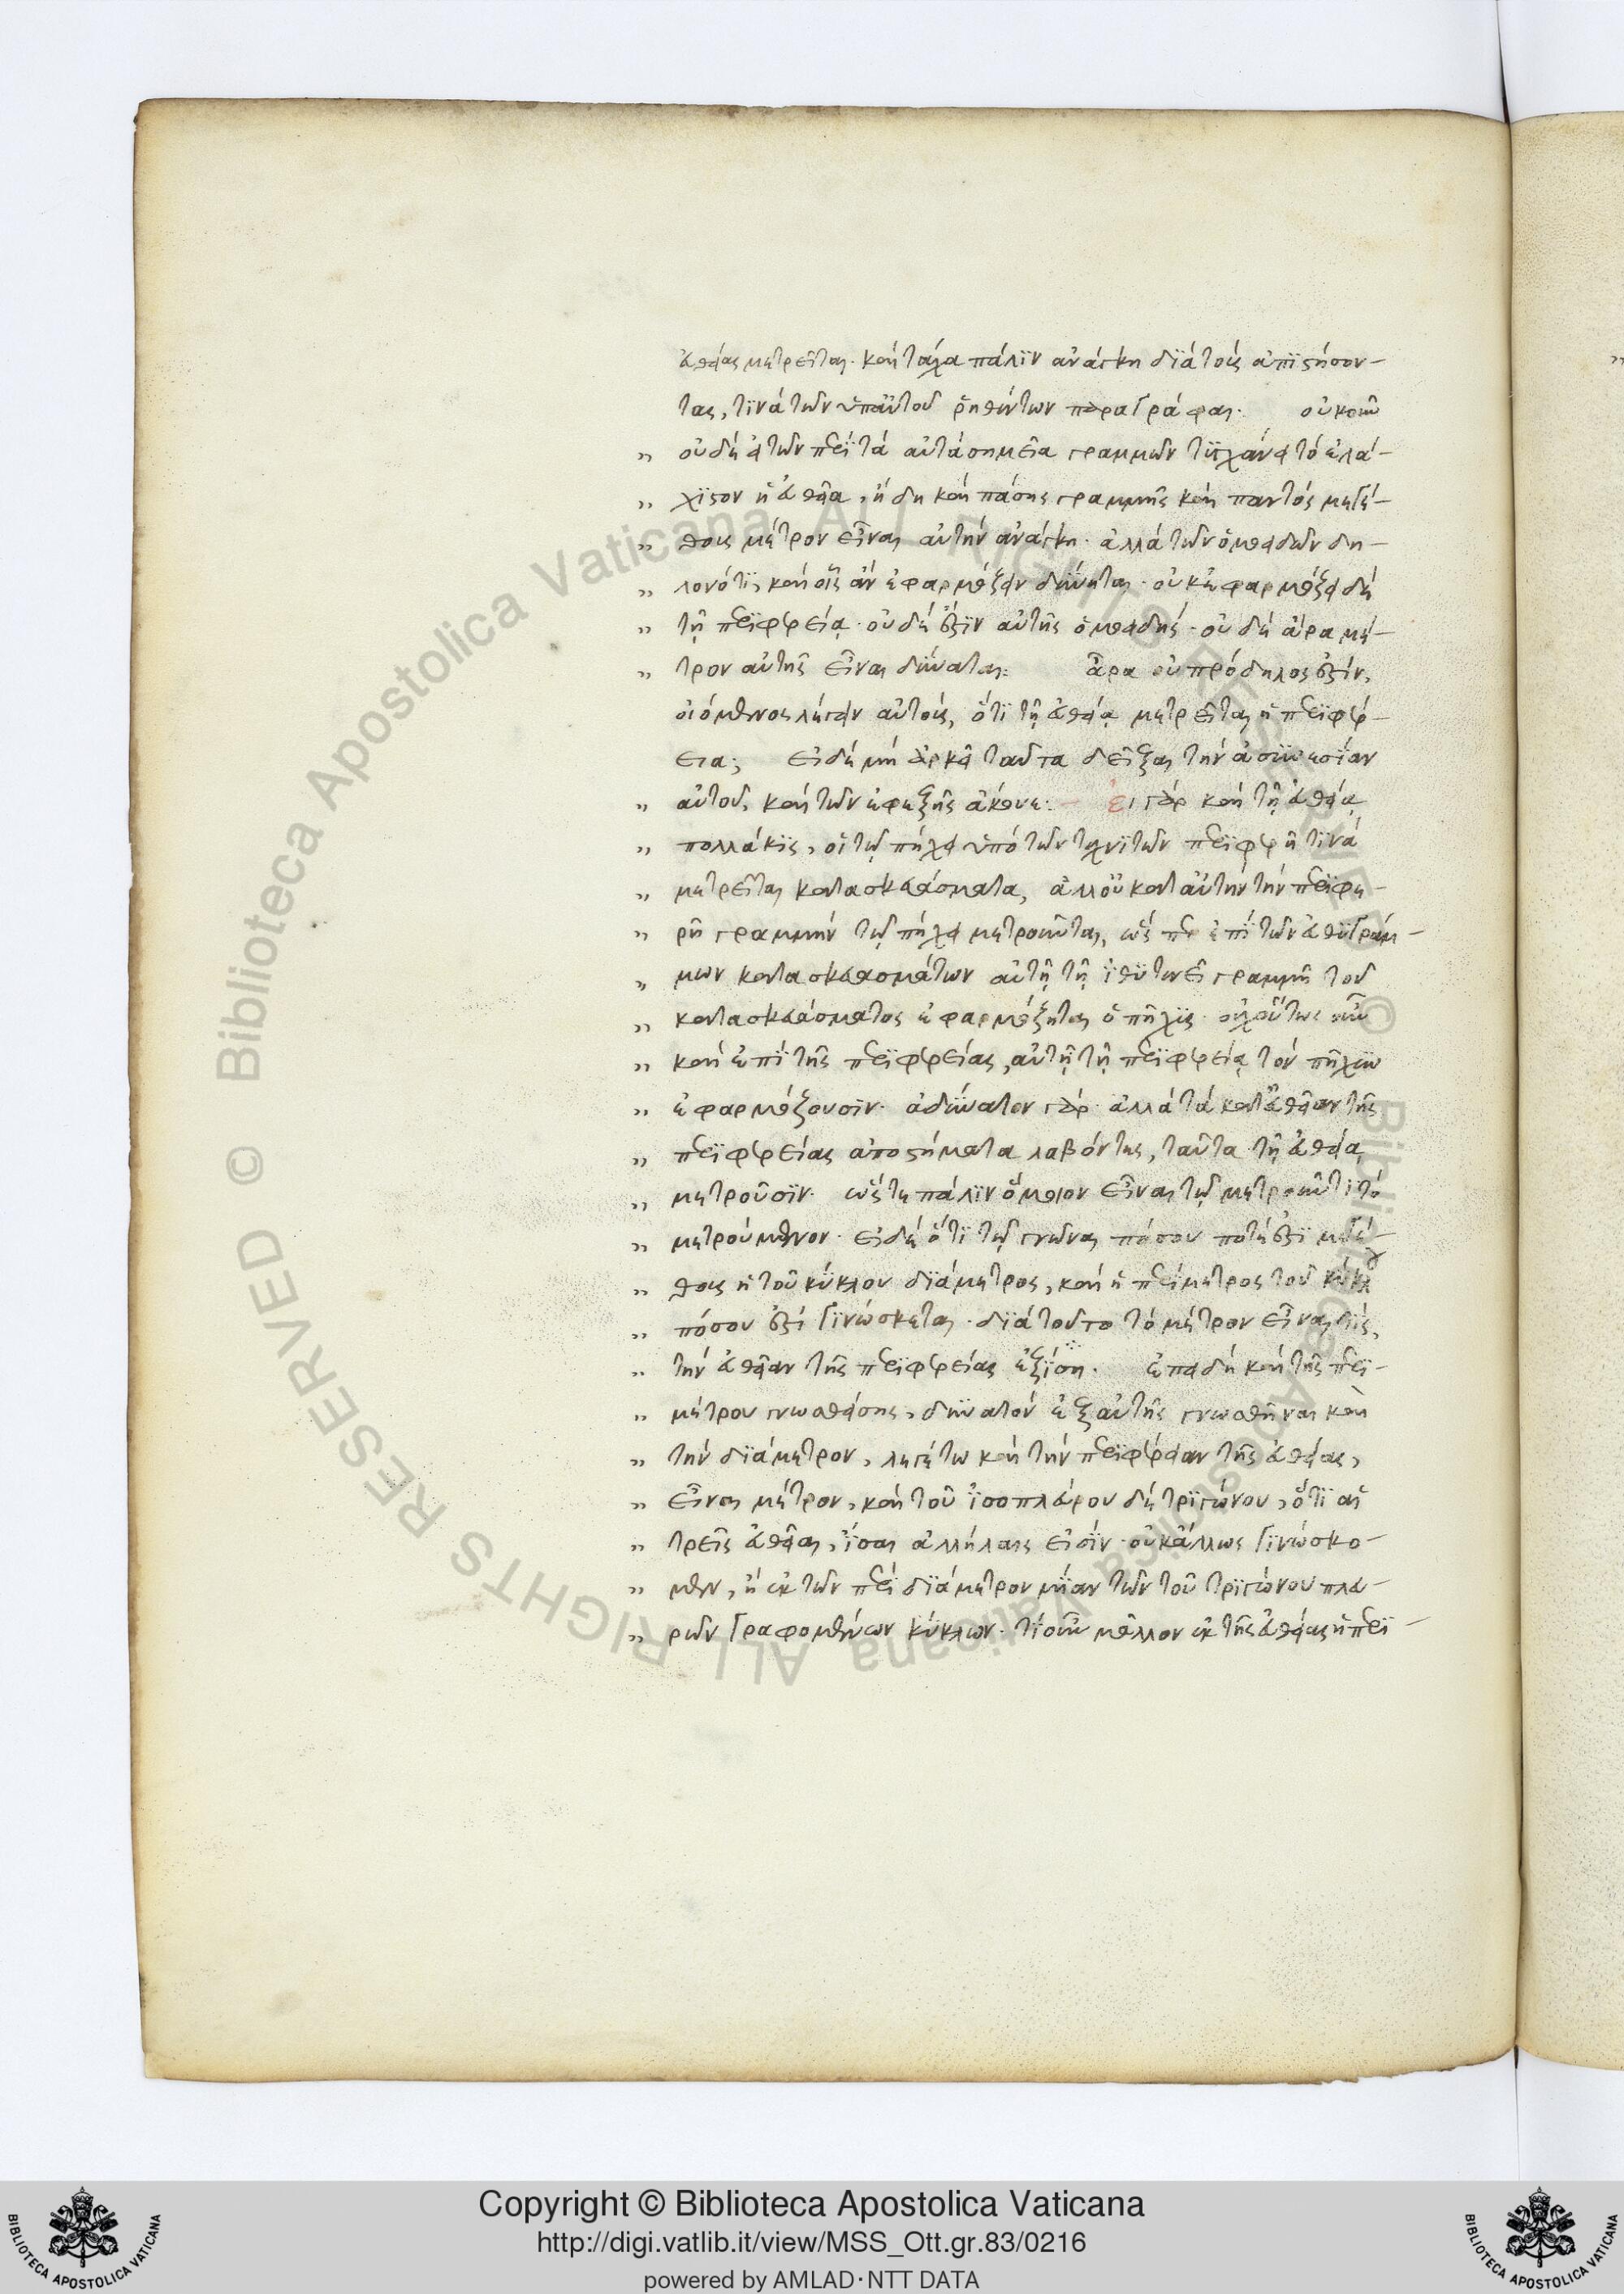 εὐθείας μετρεῖται· καὶ τάχα πάλϊν ἀνάγκη δϊὰ τοὺς ἀπϊστήσον-
τας, τϊνὰ τῶν ὑπ' αὐτοῦ ῥηθέντων παραγράψαι· οὐκοῦν
„ οὐδὲ εἰ τῶν περὶ τὰ αὐτὰ σημεῖα γραμμῶν τυγχάνει τὸ ἐλά-
„ χϊστον ἡ εὐθεῖα, ἤδη καὶ πάσης γραμμῆς καὶ παντὸς μεγέ-
„ θους μέτρον εἶναι αὐτὴν ἀνάγκη· ἀλλὰ τῶν ὁμοειδῶν δη-
„ λονότϊ, καὶ οἷς ἂν ἐφαρμόζειν δύνηται· οὐκ ἐφαρμόζει δὲ
„ τῇ περϊφερείᾳ· οὐδέ ἐστϊν αὐτῆς ὁμοειδής· οὐδὲ ἄρα μέ-
„ τρον αὐτῆς εἶναι δύναται: ἆρα οὐ πρόδηλος ἐστίν,
οἰόμενος λέγειν αὐτούς, ὅτϊ τῇ εὐθείᾳ μετρεῖται ἡ περϊφέ-
εια; εἰ δὲ μὴ ἀρκεῖ ταῦτα δεῖξαι τὴν ἀσυνεσίαν
„ αὐτοῦ, καὶ τῶν ἐφεξῆς ἄκουε:– εἰ γὰρ καὶ τῇ εὐθείᾳ
„ πολλάκϊς, οἱ τῷ πήχει ὑπὸ τῶν τεχνϊτῶν περϊφερῆ τϊνὰ
„ μετρεῖται κατασκευάσματα, ἀλλ' οὐ κατ' αὐτὴν τὴν περϊφε-
„ ρῆ γραμμὴν τῷ πήχει μετροῦνται, ὥς περ ἐπὶ τῶν εὐθϋγράμ-
„ μων κατασκευασμάτων αὐτῇ τῇ ἰθϋτενεῖ γραμμῇ τοῦ
„ κατασκευάσματος ἐφαρμόζεται ὁ πῆχϋς· οὐχ οὕτως οὖν
„ καὶ ἐπὶ τῆς περϊφερείας, αὐτῇ τῇ περϊφερείᾳ τὸν πῆχυν
„ ἐφαρμόζουσϊν· ἀδύνατον γάρ· ἀλλὰ τὰ κατ' εὐθεῖαν τῆς
„ περϊφερείας ἀποστήματα λαβόντες, ταῦτα τῇ εὐθείᾳ
„ μετροῦσϊν· ὥστε πάλϊν ὅμοιον εἶναι τῷ μετροῦντϊ τὸ
„ μετρούμενον· εἰ δὲ ὅτϊ τῷ γνῶναι πόσου ποτέ ἐστϊ μεγέ-
„ θους ἡ τοῦ κύκλου δϊάμετρος, καὶ ἡ περίμετρος τοῦ κύκλου
„ πόσου ἐστὶ γϊνώσκεται· δϊὰ τοῦτο τὸ μέτρον εἶναί τϊς,
„ τὴν εὐθεῖαν τῆς περϊφερείας ἀξϊοῖ· ἐπειδὴ καὶ τῆς περϊ-
„ μέτρου γνωσθείσης, δυνατὸν ἐξ αὐτῆς γνωσθῆναι καὶ
„ τὴν δϊάμετρον, λεγέτω καὶ τὴν περϊφέρειαν τῆς εὐθείας,
„ εἶναι μέτρον, καὶ τοῦ ἰσοπλεύρου δὲ τρϊγώνου, ὅτϊ αἱ
„ τρεῖς εὐθεῖαι, ἴσαι ἀλλήλαις εἰσίν· οὐκ ἄλλως γϊνώσκο-
„ μεν, ἢ ἐκ τῶν περὶ δϊάμετρον μίαν τῶν τοῦ τρϊγώνου πλευ-
„ ρῶν γραφομένων κύκλων· τί οὖν μᾶλλον ἐκ τῆς εὐθείας ἡ περϊ-
Copyright © Biblioteca Apostolica Vaticana
http://digi.vatlib.it/view/MSS_Ott.gr.83/0216
powered by AMLAD·NTT DATA